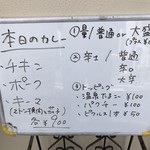 本日のカレー
・チキン
・ポーク
・キーマ
各¥900
①量/普通or大盛
②辛さ/普通
辛口
大辛
③トッピング
・温泉たまご…100
・パクチー…100
・ピクルス…50